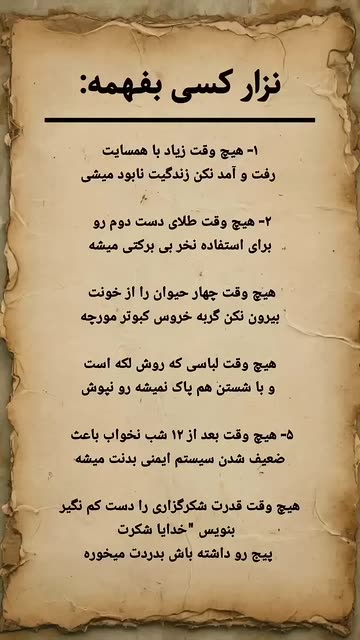 نزار کسی بفهمه:
۱- هیچ وقت زیاد با همسایت
رفت و آمد نکن زندگیت نابود میشی
۲- هیچ وقت طلای دست دوم رو
برای استفاده نخر بی برکتی میشه
هیچ وقت چهار حیوان را از خونت
بیرون نکن گربه خروس کبوتر مورچه
هیچ وقت لباسی که روش لکه است
و با شستن هم پاک نمیشه رو نپوش
۵- هیچ وقت بعد از ۱۲ شب نخواب باعث
ضعیف شدن سیستم ایمنی بدنت میشه
هیچ وقت قدرت شکرگزاری را دست کم نگیر
بنویس "خدایا شکرت
پیج رو داشته باش بدردت میخوره